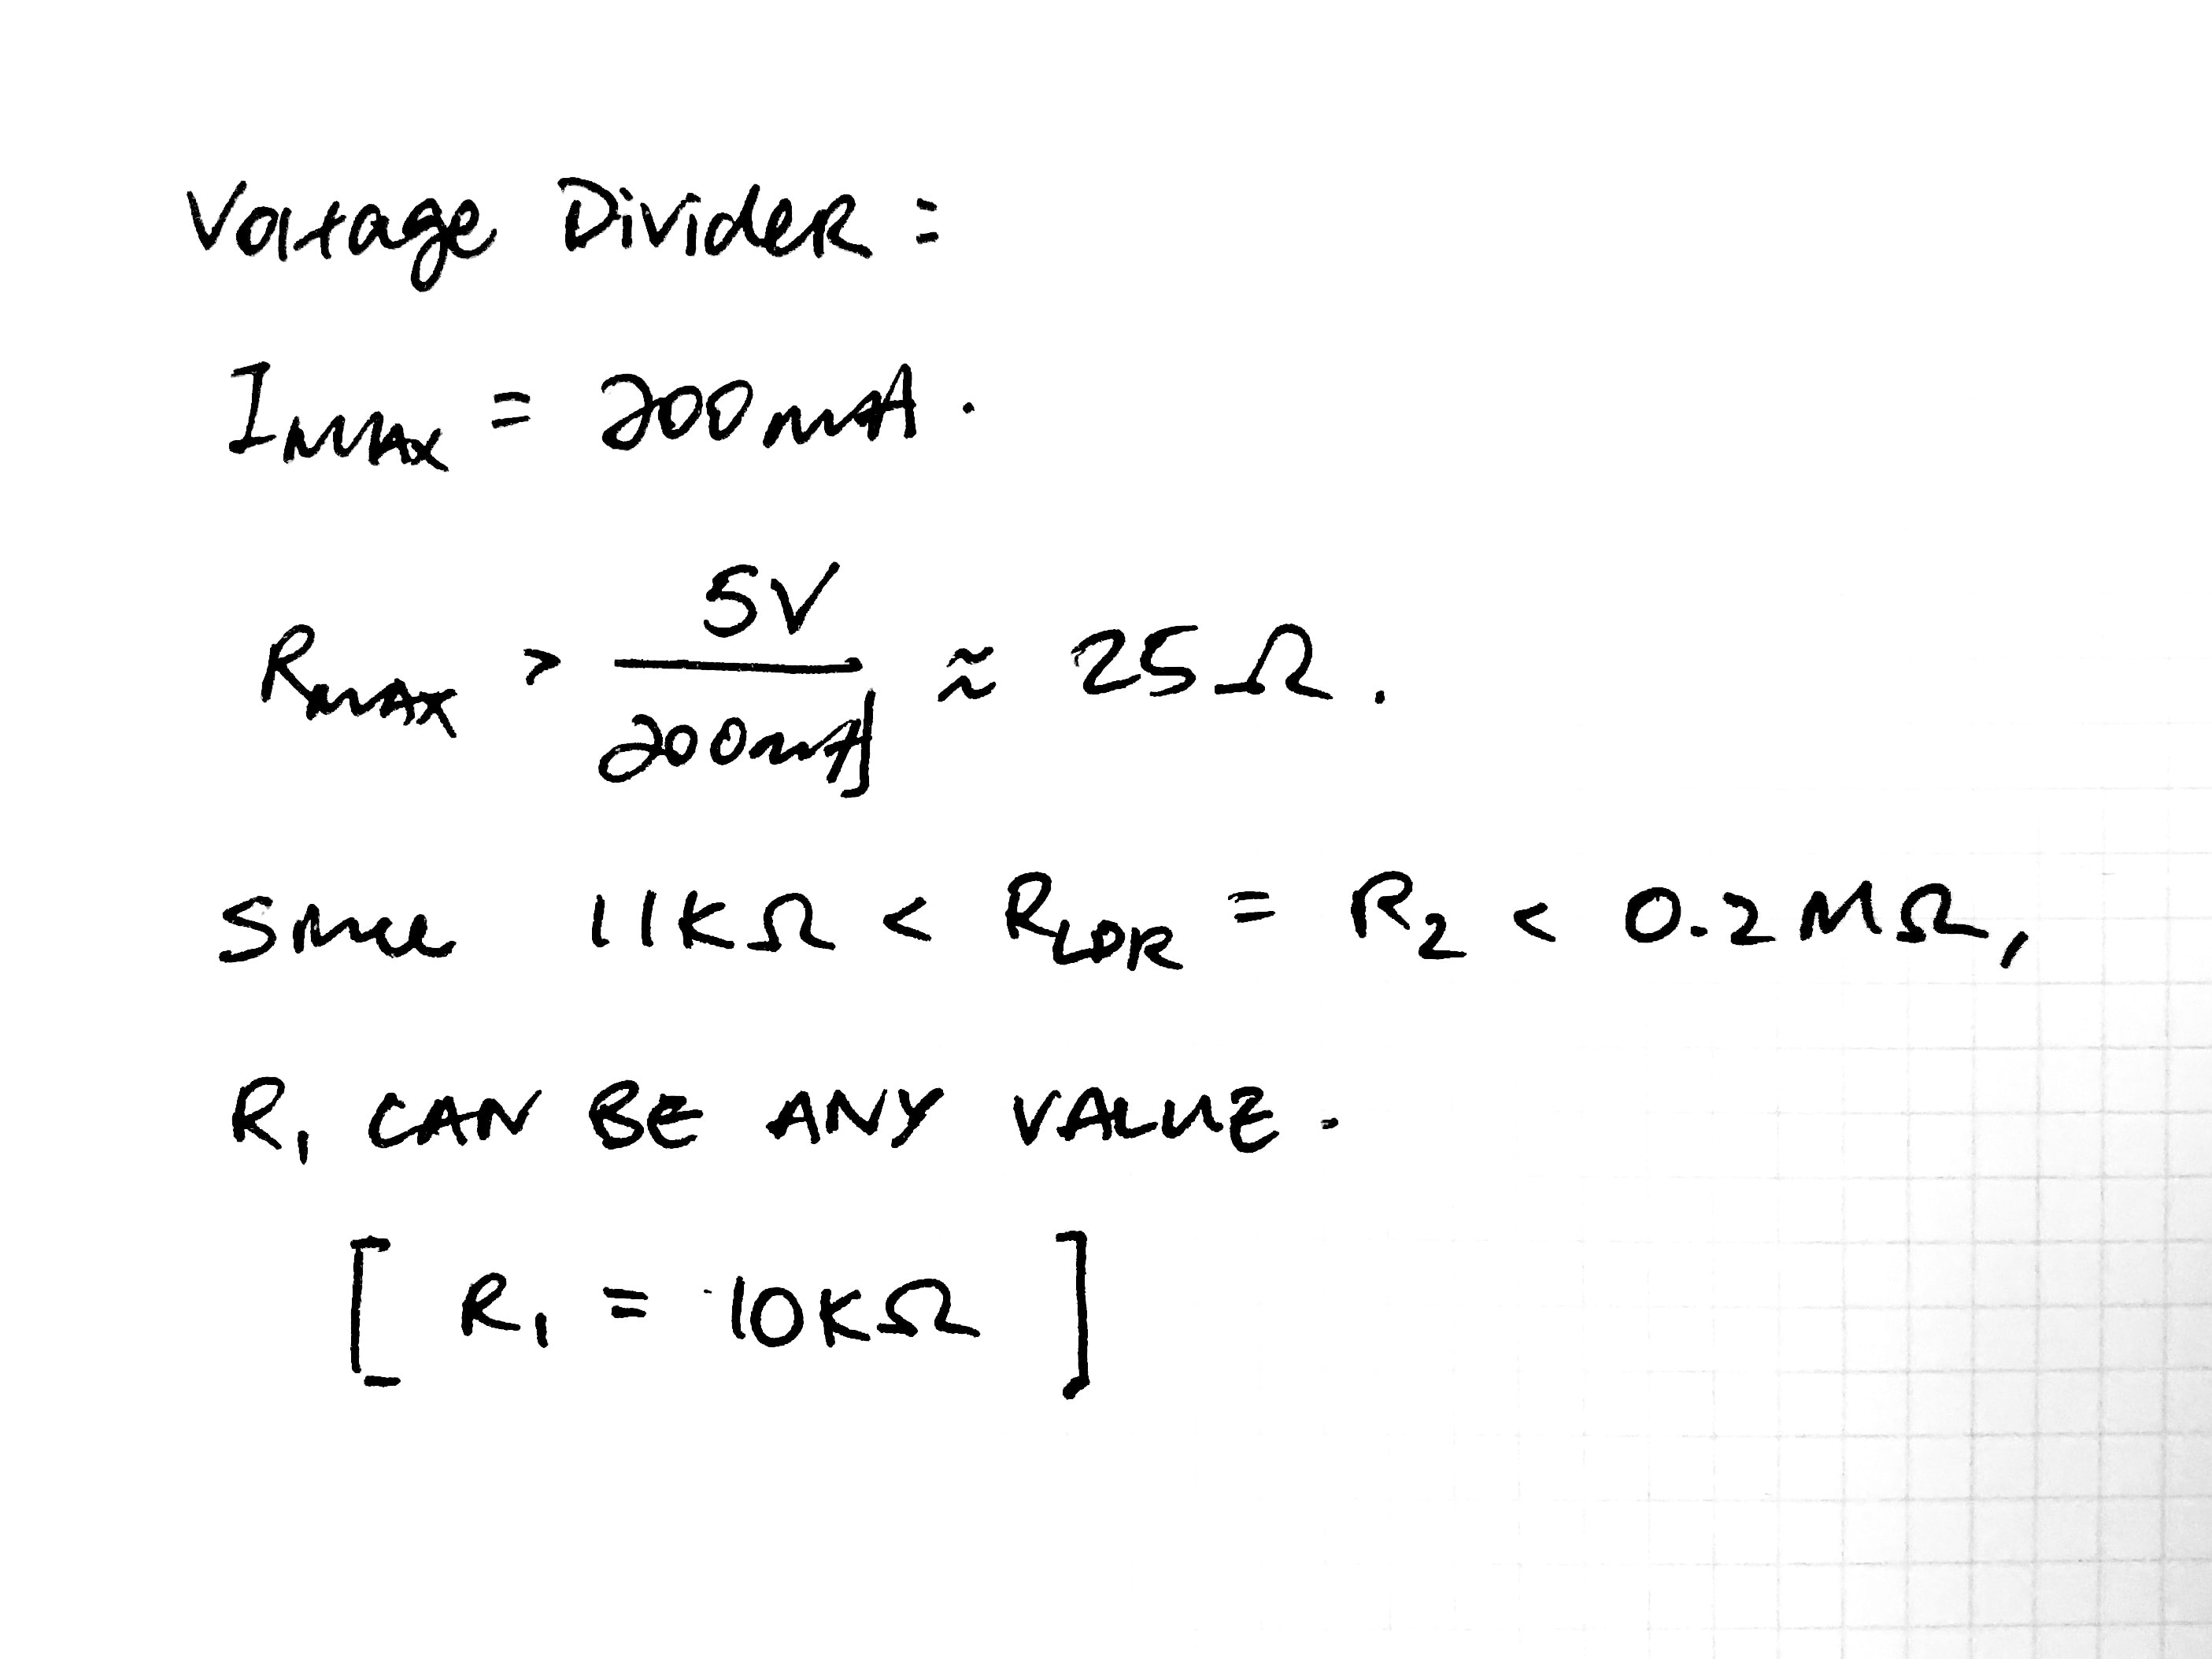 Voltage Divider:
I_MAX = 200mA.
R_MAX > 5V / 200mA ≈ 25Ω.
Since 11KΩ < R_LDR = R_2 < 0.2MΩ,
R_1 CAN BE ANY VALUE.
[ R_1 = 10KΩ ]